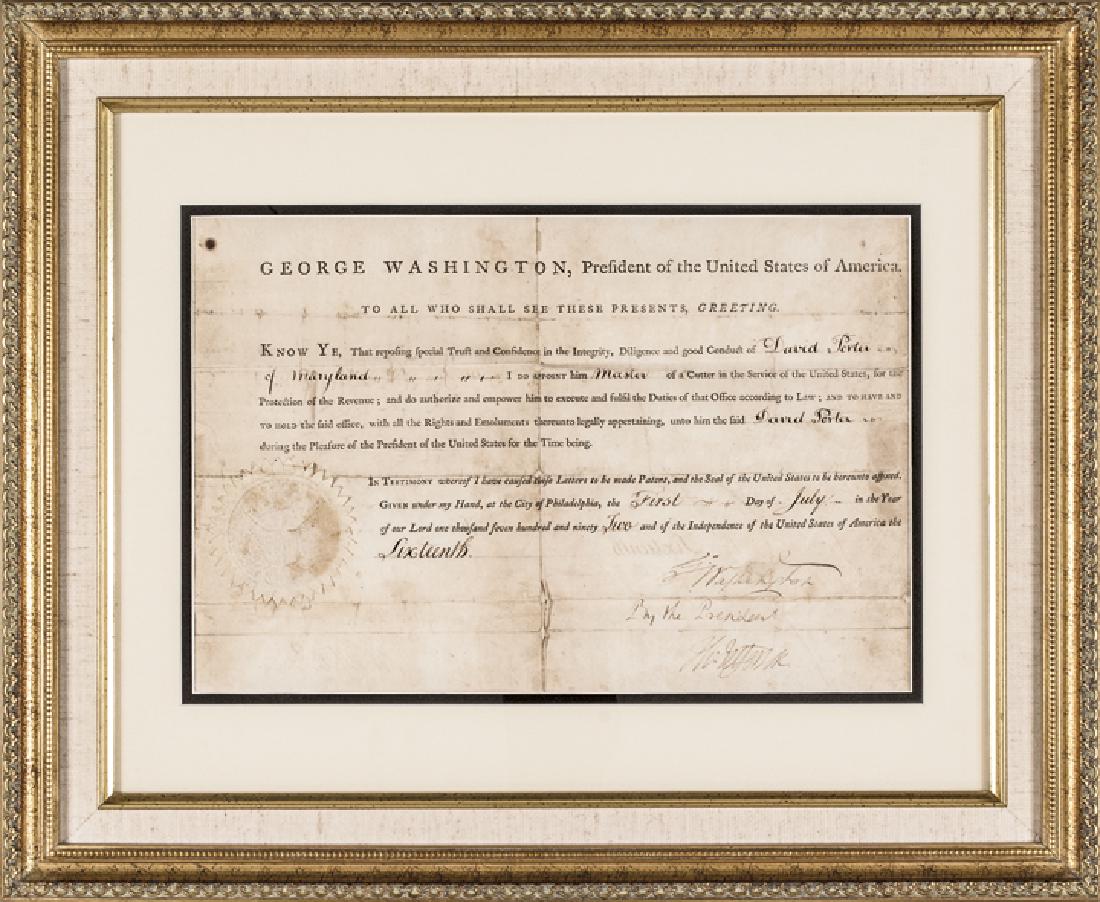 GEORGE WASHINGTON, Preſident of the United States of America.
TO ALL WHO SHALL SEE THESE PRESENTS, GREETING.
KNOW YE, That repoſing ſpecial Truſt and Confidence in the Integrity, Diligence and good Conduct of David Porter
of Maryland I DO APPOINT him Master of a Cutter in the Service of the United States, for the
Protection of the Revenue; and do authorize and empower him to execute and fulfil the Duties of that Office according to Law; AND TO HAVE AND
TO HOLD the ſaid office, with all the Rights and Emoluments thereunto legally appertaining, unto him the ſaid David Porter
during the Pleaſure of the Preſident of the United States for the Time being.
IN TESTIMONY whereof I have cauſed theſe Letters to be made Patent, and the Seal of the United States to be hereunto affixed.
GIVEN under my Hand, at the City of Philadelphia, the First Day of July in the Year
of our Lord one thouſand ſeven hundred and ninety Two and of the Independence of the United States of America the
Sixteenth.
G Washington
By the President
Th Jefferson